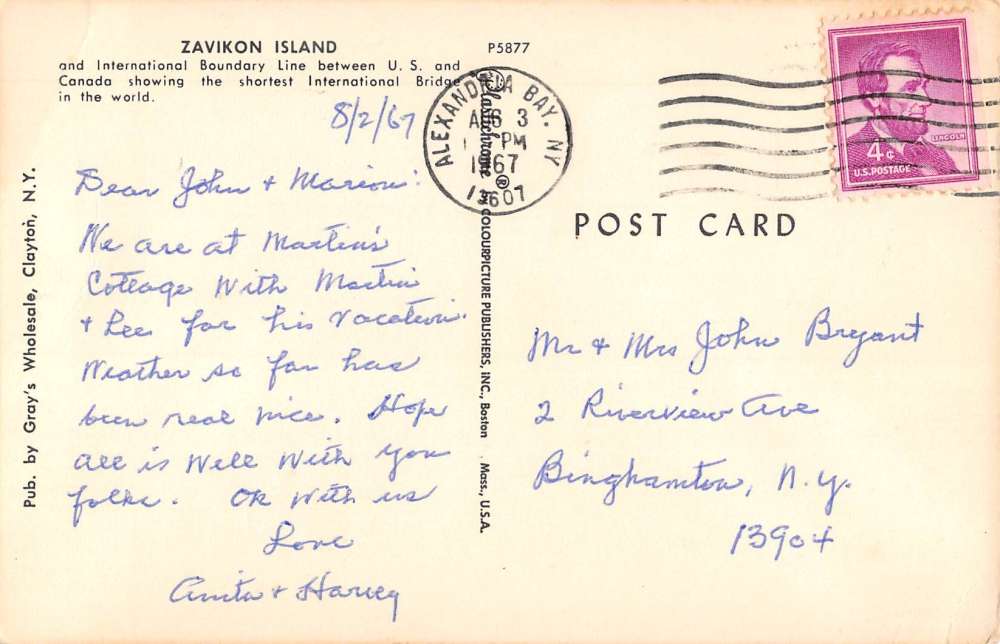 ZAVIKON ISLAND
and International Boundary Line between U. S. and
Canada showing the shortest International Bridge
in the world.
P5877
8/2/67
Dear John + Marion:
We are at Martin's
Cottage With Martin
+ Lee for his vacation.
Weather so far has
been real nice. Hope
all is Well With you
folks. OK With us
Love
Anita + Harvey
Pub. by Gray's Wholesale, Clayton, N.Y.
Plastichrome ® by COLOURPICTURE PUBLISHERS, INC., Boston Mass., U.S.A.
ALEXANDRIA BAY. NY
AUG 3
PM
1967
13607
LINCOLN
4¢
U.S. POSTAGE
POST CARD
Mr + Mrs John Bryant
2 Riverview Ave
Binghamton, N.Y.
13904